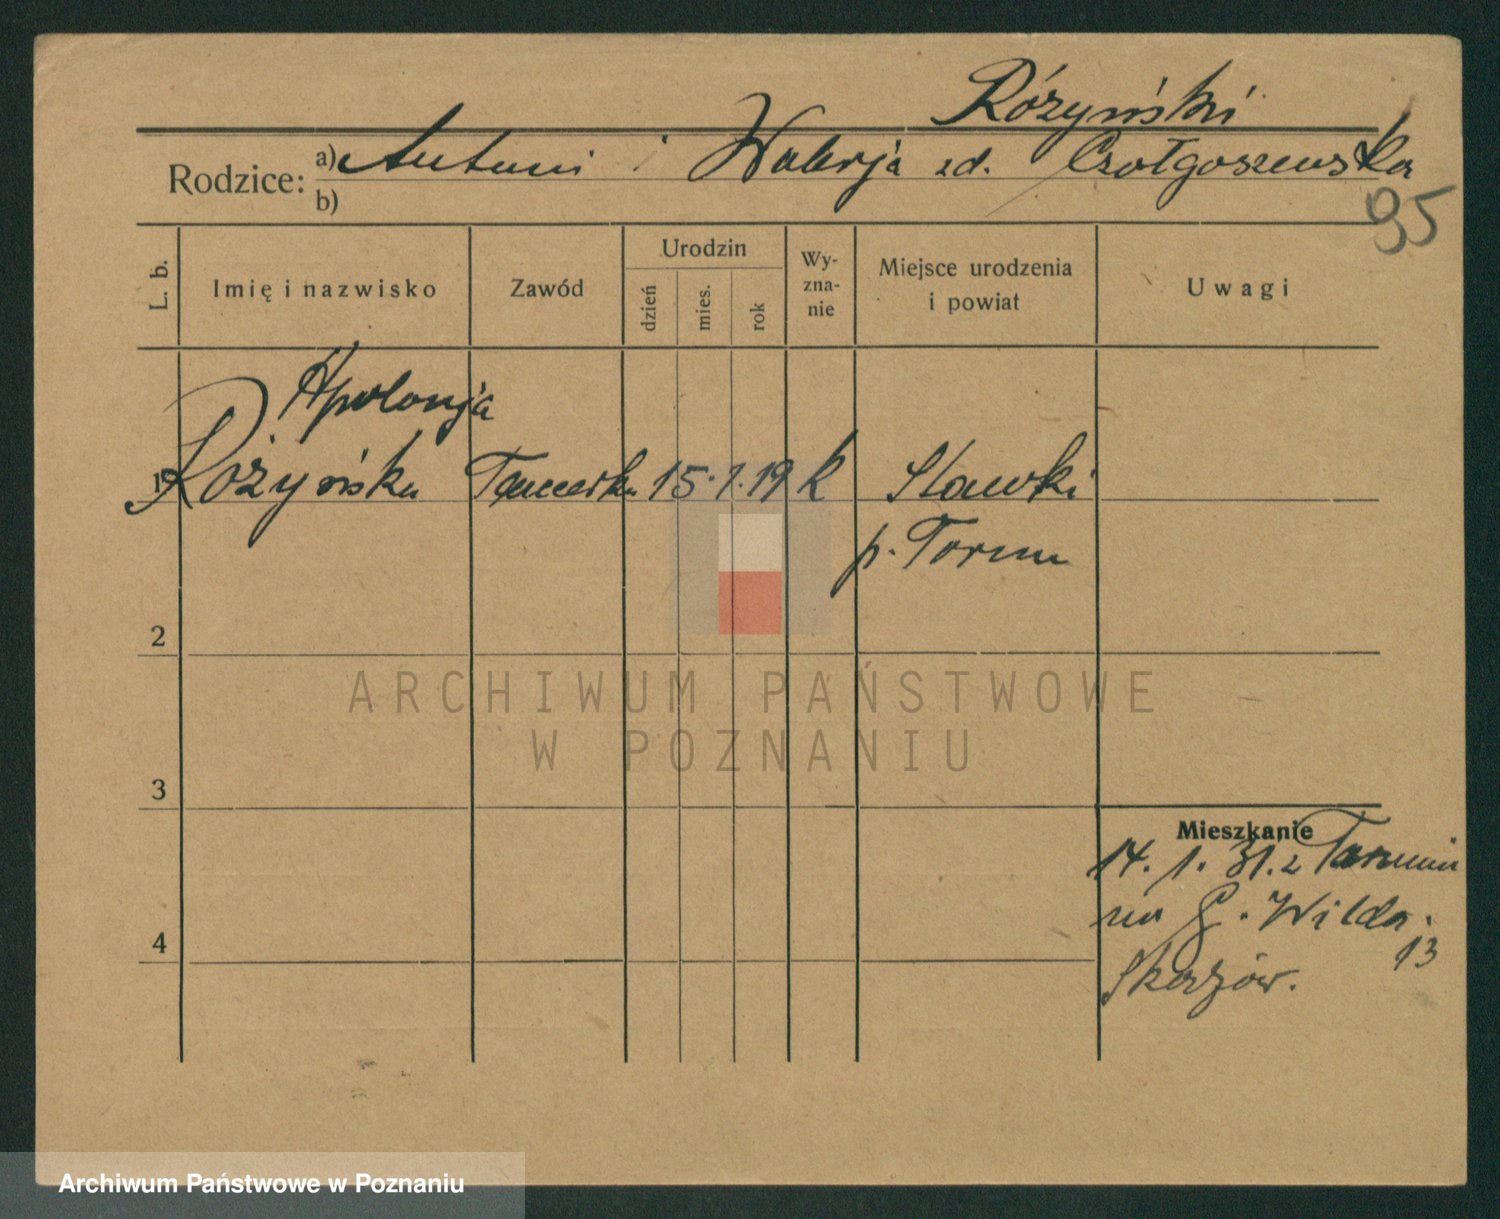 Różyński
Rodzice: a) Antoni i Walerja zd. Czołgoszewska
b)
95
L. b.
Imię i nazwisko
Zawód
Urodzin
dzień
mies.
rok
Wy-
zna-
nie
Miejsce urodzenia
i powiat
Uwagi
Apolonja
1 Różyńska Tancerka 15. 1. 19 k Stawki
p. Toruń
2
ARCHIWUM PAŃSTWOWE
W POZNANIU
3
Mieszkanie
14. 1. 31. z Torunia
na G. Wilda
13
4
Archiwum Państwowe w Poznaniu